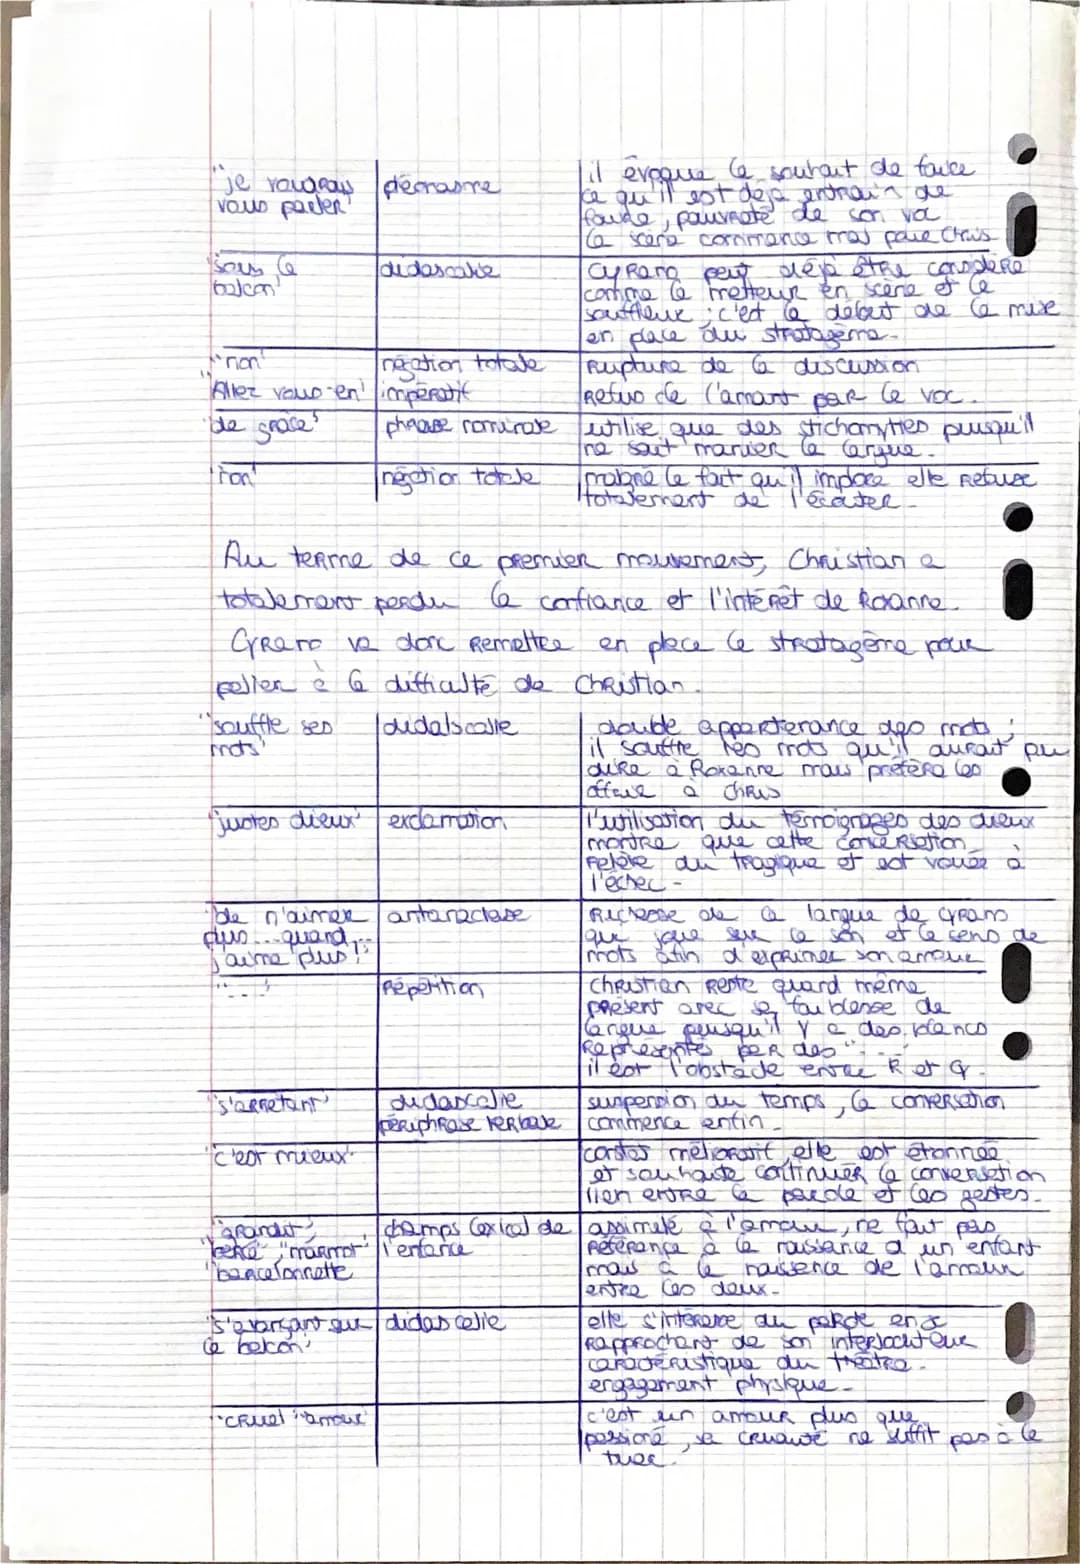 "je voudrais | pléonasme | il évoque le souhait de faire
vous parler" | ce qu'il est déjà entrain de
faire, pauvreté de son voc
la scène commence mal pour Chris
"sous le | didascalie | Cyrano peut déjà être considéré
balcon" | comme le metteur en scène et le
souffleur ; c'est le début de la mise
en place du stratagème.
"non" | négation totale | Rupture de la discussion
"Allez vous-en" | impératif | Refus de l'amant par le voc.
"de grâce" | phrase nominale | utilise que des stichomyties puisqu'il
ne sait manier la langue.
"non" | négation totale | malgré le fait qu'il implore elle refuse
totalement de l'écouter.
Au terme de ce premier mouvement, Christian a
totalement perdu la confiance et l'intérêt de Roxanne.
Cyrano va donc remettre en place le stratagème pour
palier à la difficulté de Christian.
"souffle ses | didalscalie | double appartenance des mots ;
mots" | il souffle les mots qu'il aurait pu
dire à Roxanne mais préfère les
offrir à Chris
"justes dieux" | exclamation | l'utilisation du témoignages des dieux
montre que cette conversation
relève du tragique et est vouée à
l'échec -
"de n'aimer | antanaclase | Richesse de la langue de Cyrano
plus...quand... | qui joue sur le son et le sens de
j'aime plus!" | mots afin d'exprimer son amour
"..." | Répétition | Christian reste quand même
présent avec sa faiblesse de
langue puisqu'il y a des blancs
représentés par des "..."
il est l'obstacle entre R et C.
"s'arrêtant" | didascalie | suspension du temps, la conversation
périphrase verbale | commence enfin.
"c'est mieux" | constat mélioratif, elle est étonnée
et souhaite continuer la conversation
lien entre la parole et les gestes.
"grandit", | champs lexical de | assimilé à l'amour, ne fait pas
"bébé", "marmot" | l'enfance | référence à la naissance d'un enfant
"barcelonnette | mais à la naissance de l'amour
entre les deux.
"s'avançant sur | didascalie | elle s'intéresse du parole en se
le balcon" | rapprochant de son interlocuteur
caractéristique du théâtre.
engagement physique.
"cruel" "amour" | c'est un amour plus que
passioné, sa cruauté ne suffit pas à le
tuer.